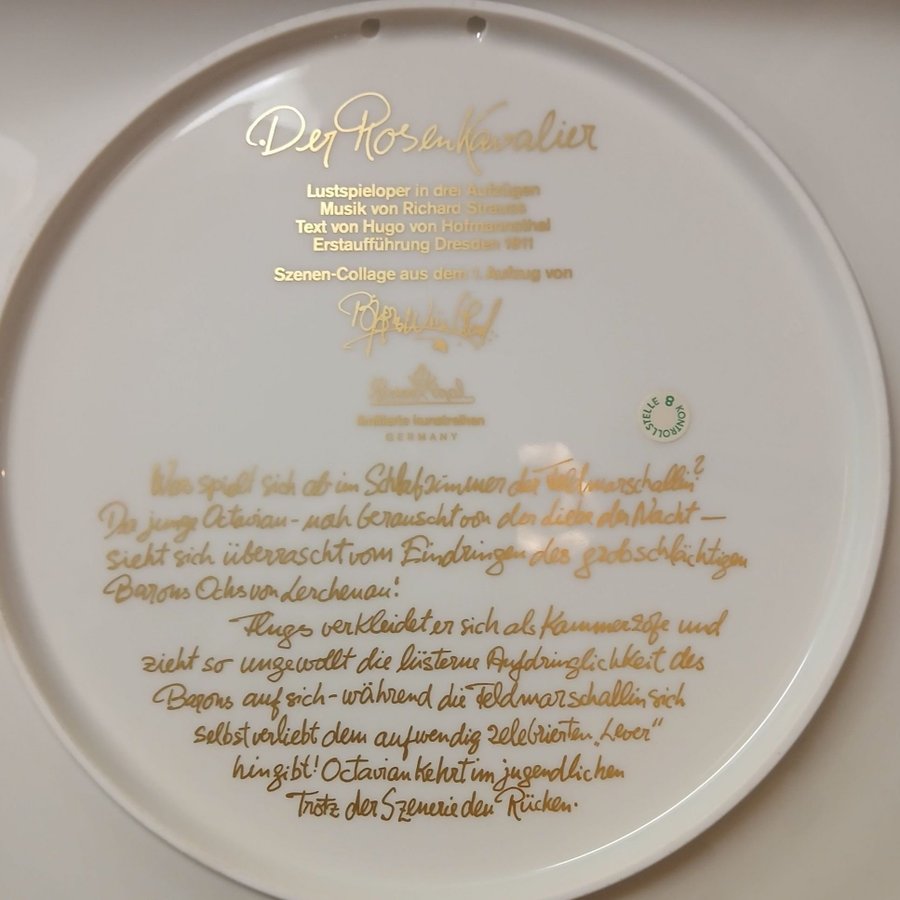 Der Rosenkavalier
Lustspieloper in drei Aufzügen
Musik von Richard Strauss
Text von Hugo von Hofmannsthal
Erstaufführung Dresden 1911
Szenen-Collage aus dem 1. Aufzug von
Björn Wiinblad
Rosenthal
limitierte kunstreihen
GERMANY
KONTROLLSTELLE 8
Was spielt sich ab im Schlafzimmer der Feldmarschallin?
Der junge Octavian - noch berauscht von der Liebe der Nacht —
sieht sich überrascht vom Eindringen des grobschlächtigen
Barons Ochs von Lerchenau!
Flugs verkleidet er sich als Kammerzofe und
zieht so ungewollt die lüsterne Aufdringlichkeit des
Barons auf sich - während die Feldmarschallin sich
selbstverliebt dem aufwendig zelebrierten „Lever“
hingibt! Octavian kehrt im jugendlichen
Trotz der Szenerie den Rücken.